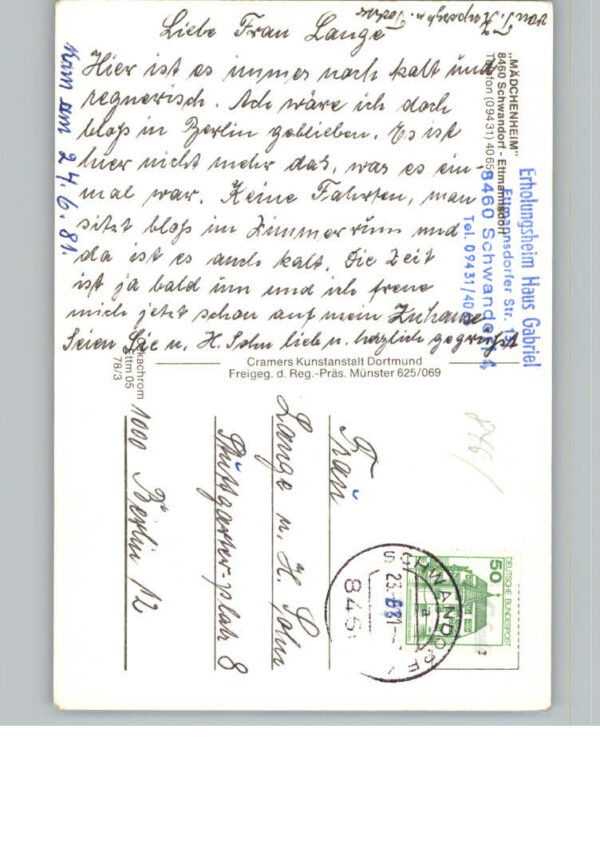 Liebe Frau Lange
Hier ist es immer noch kalt und
regnerisch. Ach wäre ich doch
bloß in Berlin geblieben. Es ist
hier nicht mehr das, was es ein-
mal war. Keine Fahrten, man
sitzt bloß im Zimmer rum und
da ist es auch kalt. Die Zeit
ist ja bald um und ich freue
mich jetzt schon auf mein Zuhause
Seien Sie u. H. Sohn lieb u. herzlich gegrüßt
von
u. Tochter
Kam am 24.6.81.
„MÄDCHENHEIM"
8460 Schwandorf - Ettmannsdorf
Telefon (09431) 4065
Erholungsheim Haus Gabriel
Ettmannsdorfer Str.
8460 Schwandorf
Tel. 09431/40
Cramers Kunstanstalt Dortmund
Freigeg. d. Reg.-Präs. Münster 625/069
Ettm 05
78/3
Frau
Lange u. H. Sohn
Stuttgarter-platz 8
1000 Berlin 12
DEUTSCHE BUNDESPOST
50
SCHWANDORF
23.-6.81
845